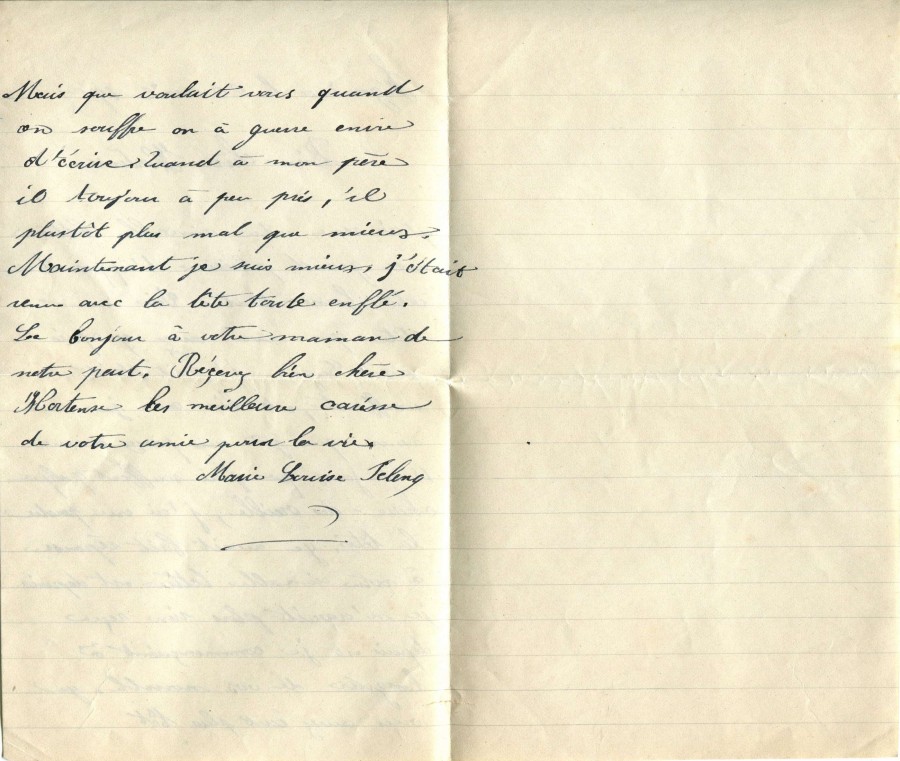 Mais que voulait vous quand
on souffre on à guerre envie
d'écrire. Quand à mon père
il toujour à peu prés, il
plustôt plus mal que mieux.
Maintenant je suis mieux, j'était
venue avec la tête toute enflé.
Le bonjour à votre maman de
notre part. Réçevez bien chère
Hortense les meilleure carésse
de votre amie pour la vie.
Marie Louise